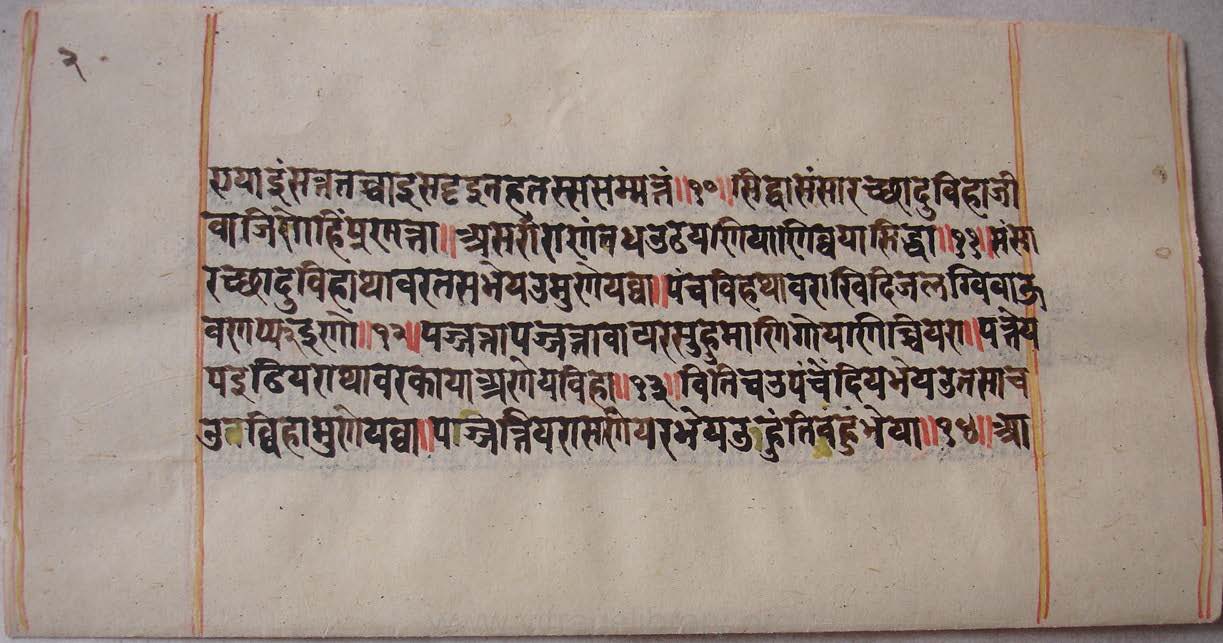 २
एयाइं सत्त तच्चाइं सद्दहंतस्स सम्मत्तं ॥१०॥ सिद्धा संसारच्छा दुविहा जी
वा जिणेहिं पण्णत्ता ॥ असरीरा णंतचउठय णिया णिव्वुया सिद्धा ॥११॥ संसा
रच्छा दुविहा थावर तस भेयउ मुणेयव्वा ॥ पंचविह थावरा खिदि जलग्गि वाऊ
वणप्फइणो ॥१२॥ पज्जत्तापज्जत्ता वायर सुहुमा णिगोय णिच्चियरा ॥ पत्तेय
पइठियरा थावरकाया अणेयविहा ॥१३॥ वि ति चउ पंचेंदिय भेयउ तसा च
उव्विहा मुणेयव्वा ॥ पज्जत्तियरा सण्णियर भेयउ हुंति बहुभेया ॥१४॥ आ